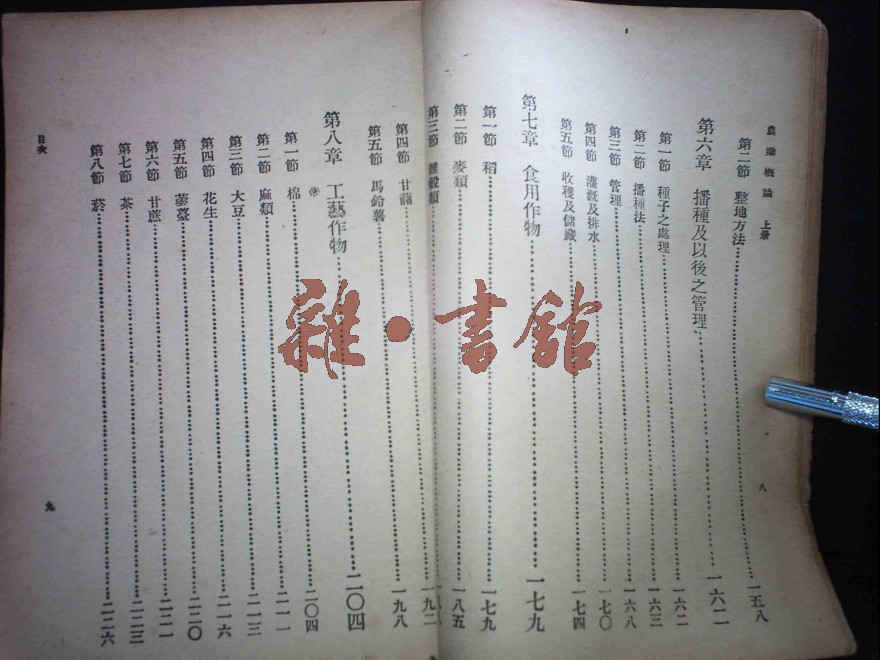 農業概論 上册
八
第二節 整地方法……一五八
第六章 播種及以後之管理……一六二
第一節 種子之處理……一六二
第二節 播種法……一六三
第三節 管理……一六八
第四節 灌漑及排水……一七〇
第五節 收穫及儲藏……一七四
第七章 食用作物……一七九
第一節 稻……一七九
第二節 麥類……一八五
第三節 雜穀類……
第四節 甘藷……一九二
第五節 馬鈴薯……一九八
第八章 工藝作物……二〇四
第一節 棉……二〇四
第二節 麻類……二一一
第三節 大豆……二一三
第四節 花生……二一六
第五節 蕓薹……二二〇
第六節 甘蔗……二二一
第七節 茶……二二三
第八節 菸……二二六
目次
九
雜·書館